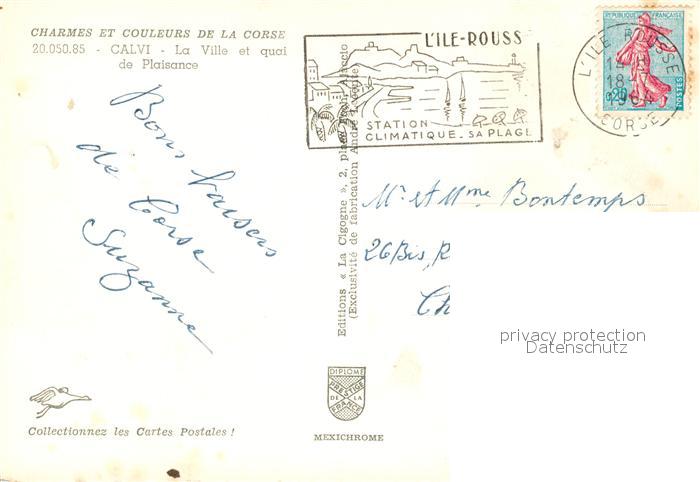 CHARMES ET COULEURS DE LA CORSE
20.050.85 - CALVI - La Ville et quai
de Plaisance
Bons baisers
de Corse
Suzanne
Collectionnez les Cartes Postales !
L'ILE-ROUSS
STATION
CLIMATIQUE_SA PLAGE
Editions « La Cigogne », 2, place Foch, Ajaccio
(Exclusivité de fabrication André Leconte)
DIPLOME
PRESTIGE
DE LA
FRANCE
MEXICHROME
REPUBLIQUE FRANÇAISE
0,20
POSTES
L'ILE ROUSSE
14 H
18
1964
CORSE
Mr et Mme Bontemps
26 Bis, R
Ch
privacy protection
Datenschutz